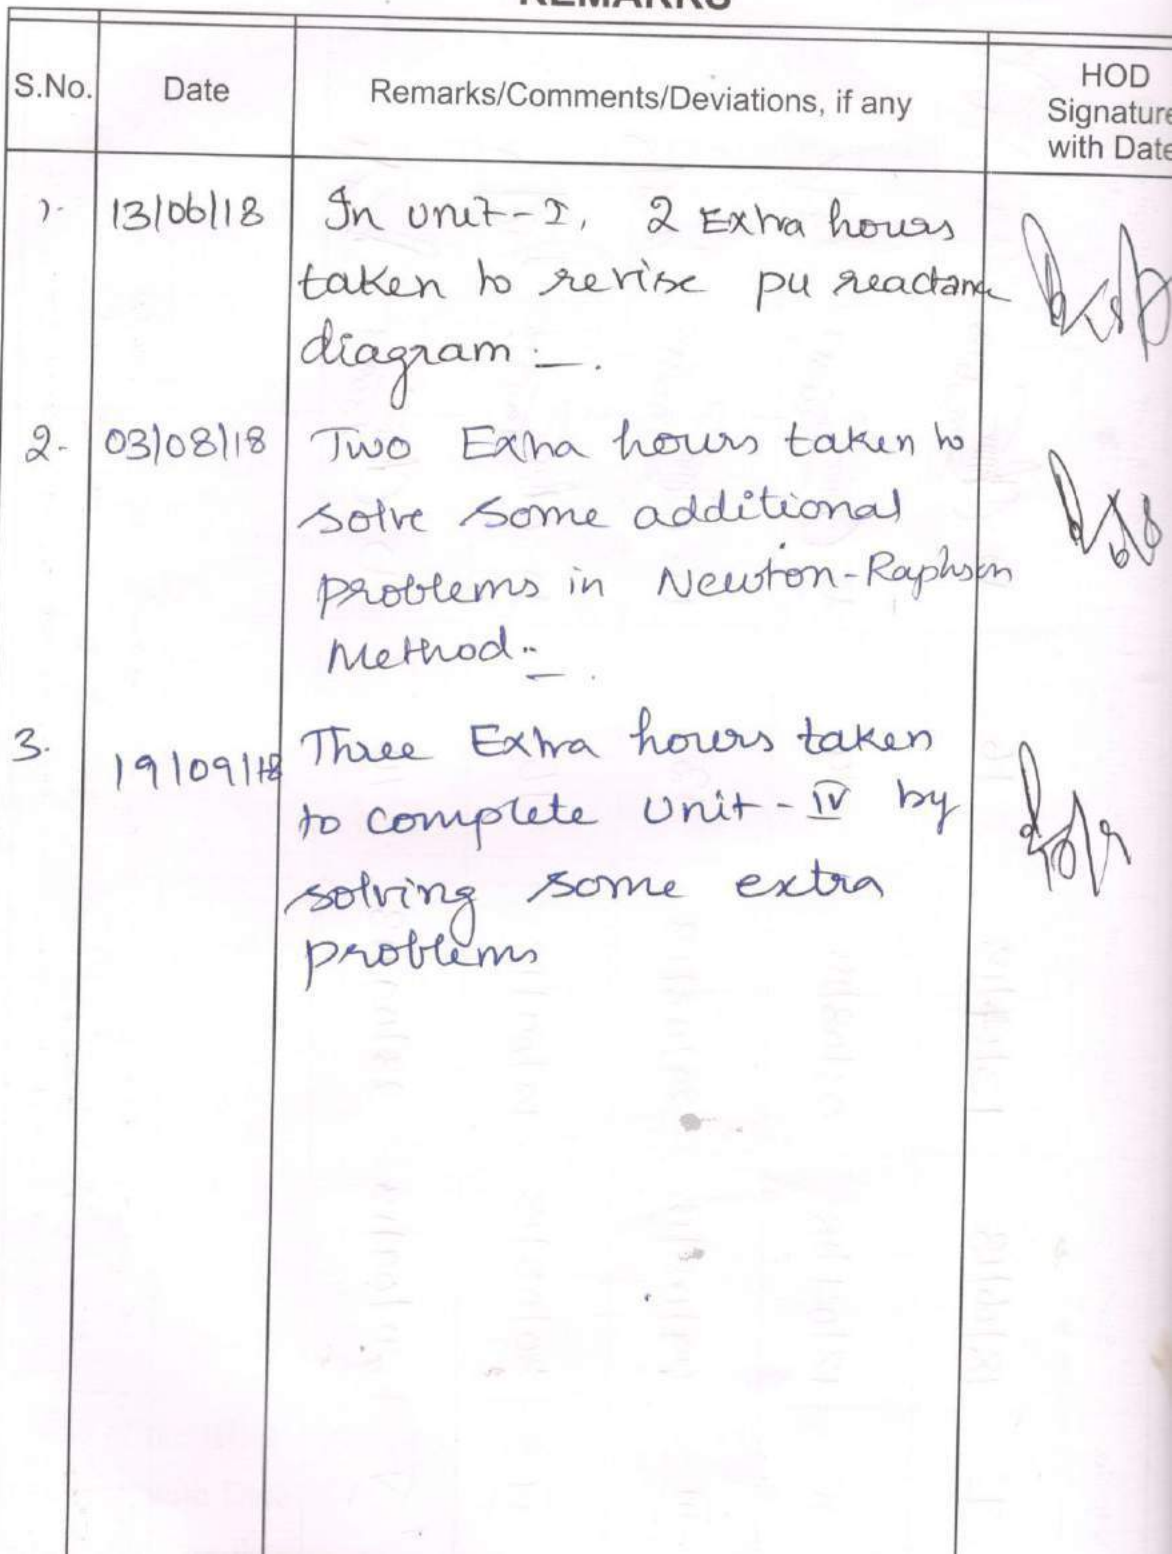 REMARKS
S.No.
Date
Remarks/Comments/Deviations, if any
HOD
Signature
with Date
1.
13/06/18
In unit-I, 2 Extra hours
taken to revise pu reactance
diagram.
2.
03/08/18
Two Extra hours taken to
solve some additional
problems in Newton-Raphson
Method.
3.
19/09/18
Three Extra hours taken
to complete Unit-IV by
solving some extra
problems